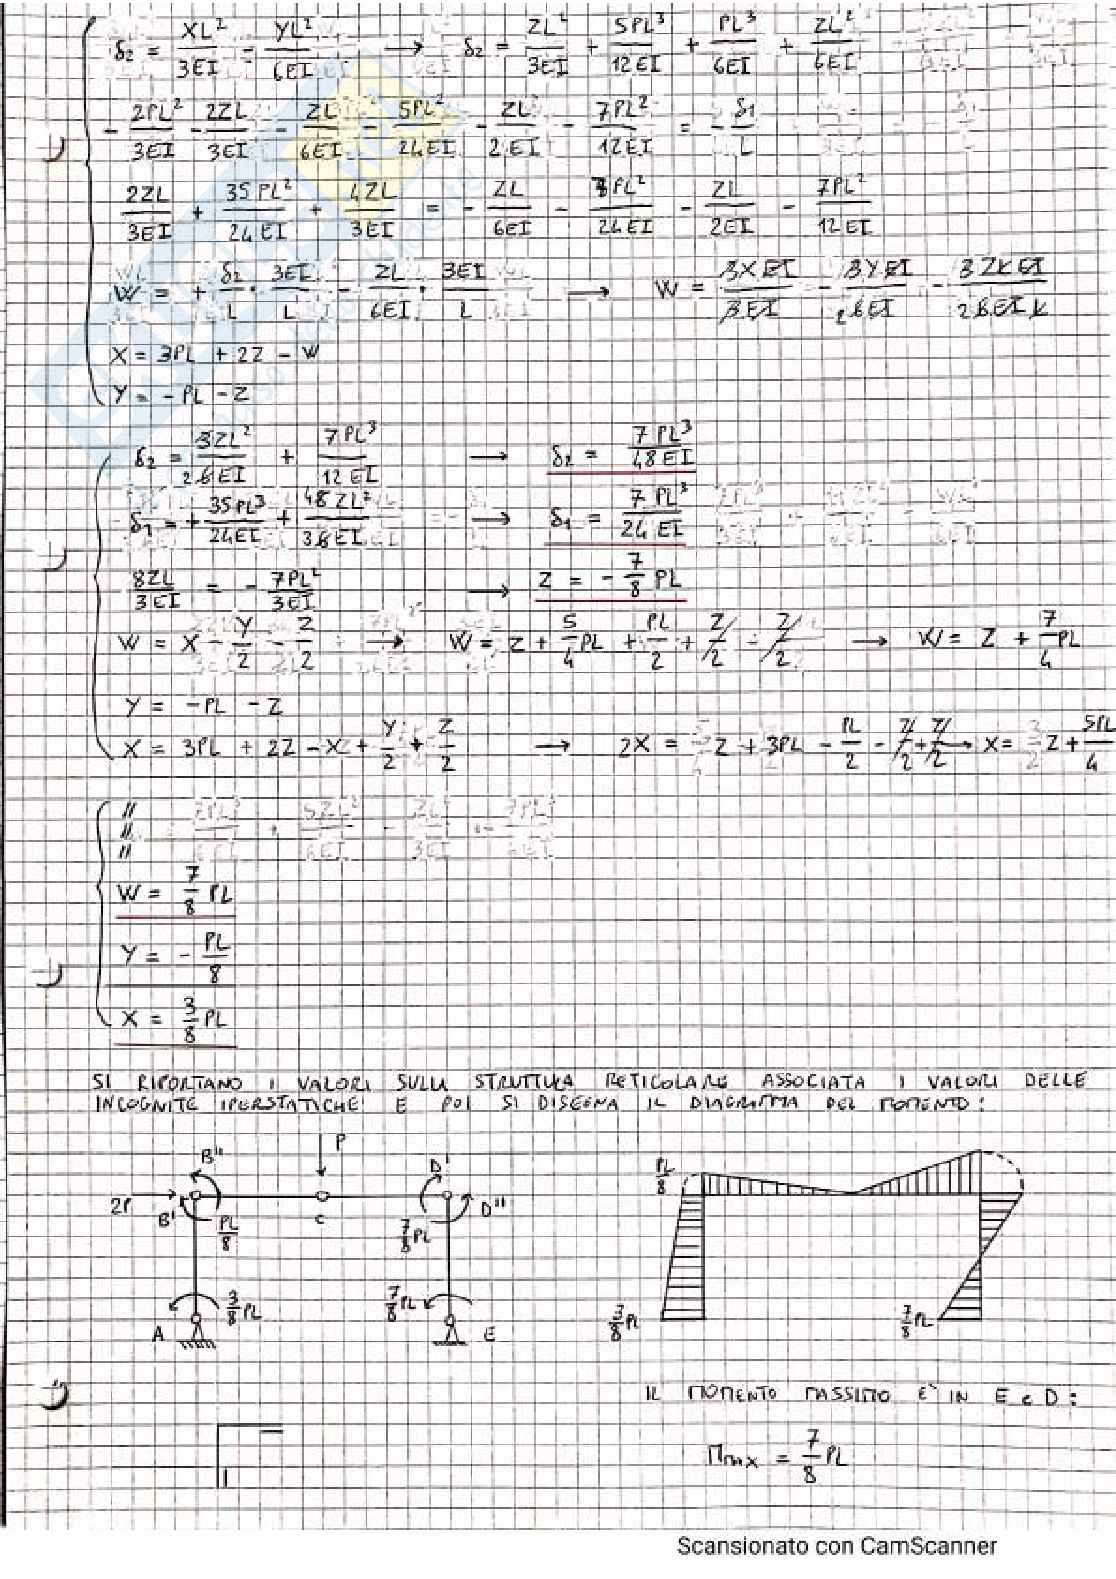 δ₂ = XL²/3EI - YL²/6EI → δ₂ = ZL²/3EI + 5PL³/12EI + PL³/6EI + ZL²/6EI
- 2PL²/3EI - 2ZL/3EI - ZL/6EI - 5PL²/24EI - ZL/2EI - 7PL²/12EI = - δ₁/L
2ZL/3EI + 35PL²/24EI + 4ZL/3EI = - ZL/6EI - PL²/24EI - ZL/2EI - 7PL²/12EI
W = + δ₂/L · 3EI/L - ZL/6EI · 3EI/L → W = 3XEI/3EI - 3YEI/6EI - 3ZLEI/6EIL
X = 3PL + 2Z - W
Y = - PL - Z
δ₂ = 3ZL²/6EI + 7PL³/12EI → δ₂ = 7PL³/48EI
δ₁ = + 35PL³/24EI + ZL²/EI → δ₁ = 7PL³/24EI
8ZL/3EI = - 7PL²/3EI → Z = - 7/8 PL
W = X - Y/2 - Z/2 → W = Z + 5/4 PL + PL/2 + Z/2 - Z/2 → W = Z + 7/4 PL
Y = -PL - Z
X = 3PL + 2Z - X + Y/2 + Z/2 → 2X = Z + 3PL - PL/2 - Z/2 + Z/2 → X = Z + 5PL/4
//
//
//
W = 7/8 PL
Y = - PL/8
X = 3/8 PL
SI RIPORTANO I VALORI SULLA STRUTTURA RETICOLARE ASSOCIATA I VALORI DELLE
INCOGNITE IPERSTATICHE E POI SI DISEGNA IL DIAGRAMMA DEL MOMENTO:
P
B'' D'
2P B' PL/8 C 7/8 PL D''
3/8 PL 7/8 PL
A E
PL/8
3/8 PL 7/8 PL
IL MOMENTO MASSIMO E' IN E e D:
Mmax = 7/8 PL
Scansionato con CamScanner